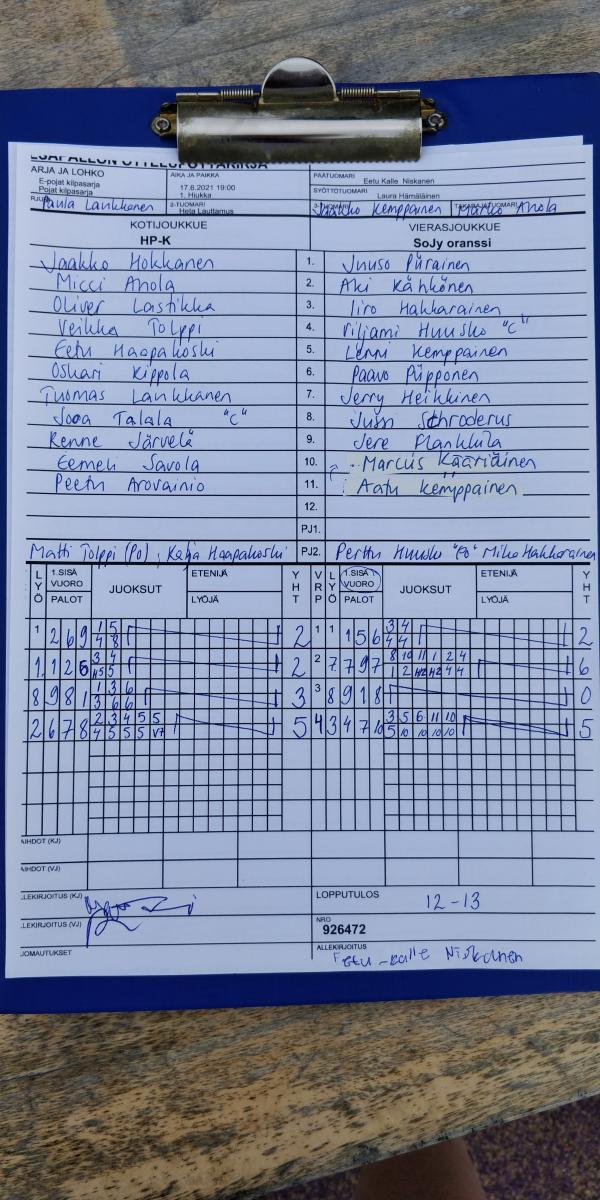 ARJA JA LOHKO
E-pojat kilpasarja
Pojat kilpasarja
AIKA JA PAIKKA
17.6.2021 19:00
1. Hiukka
PÄÄTUOMARI
Eetu Kalle Niskanen
SYÖTTÖTUOMARI
Laura Hämäläinen
Paula Laukkanen
2-TUOMARI
Heta Lauttamus
Jaakko Kemppainen
Marko Ahola
KOTIJOUKKUE
HP-K
VIERASJOUKKUE
SoJy oranssi
Jaakko Hokkanen 1. Juuso Piirainen
Micci Ahola 2. Aki Kähkönen
Oliver Lastikka 3. Iiro Hakkarainen
Veikka Tolppi 4. Viljami Huusko "C"
Eetu Haapakoski 5. Lenni Kemppainen
Oskari Kippola 6. Paavo Piipponen
Tuomas Laukkanen 7. Jerry Heikkinen
Joona Talala "C" 8. Jussi Schroderus
Kenne Järvelä 9. Jere
Eemeli Savola 10. Marcus Kääriäinen
Peetu Arovainio 11. Aatu Kemppainen
12.
PJ1.
Matti Tolppi (Po), Katja Haapakoski PJ2. Perttu Huusko "Po" Mika Hakkarainen
LYÖ 1.SISÄ VUORO PALOT JUOKSUT ETENIJÄ LYÖJÄ YHT VRP LYÖ 1.SISÄ VUORO PALOT JUOKSUT ETENIJÄ LYÖJÄ YHT
1 2 6 9 1 5 2 1 1 1 5 6 3 4 2
4 8 4 4
1 1 2 6 3 4 2 2 7 7 9 7 8 10 11 1 2 4 6
5 5 1 2 H2 H2 4 4
8 9 8 1 1 3 6 3 3 8 9 1 8 0
3 6 6
2 6 7 8 2 3 4 5 5 5 4 3 4 7 10 3 5 6 11 10 5
4 5 5 5 V7 5 10 10 10 10
AIHDOT (KJ)
AIHDOT (VJ)
LLEKIRJOITUS (KJ)
LOPPUTULOS
12-13
LLEKIRJOITUS (VJ)
NRO
926472
UOMAUTUKSET
ALLEKIRJOITUS
Eetu-Kalle Niskanen